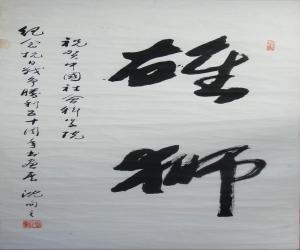 雄狮
祝贺中国社会科学院
纪念抗日战争胜利五十周年书画展